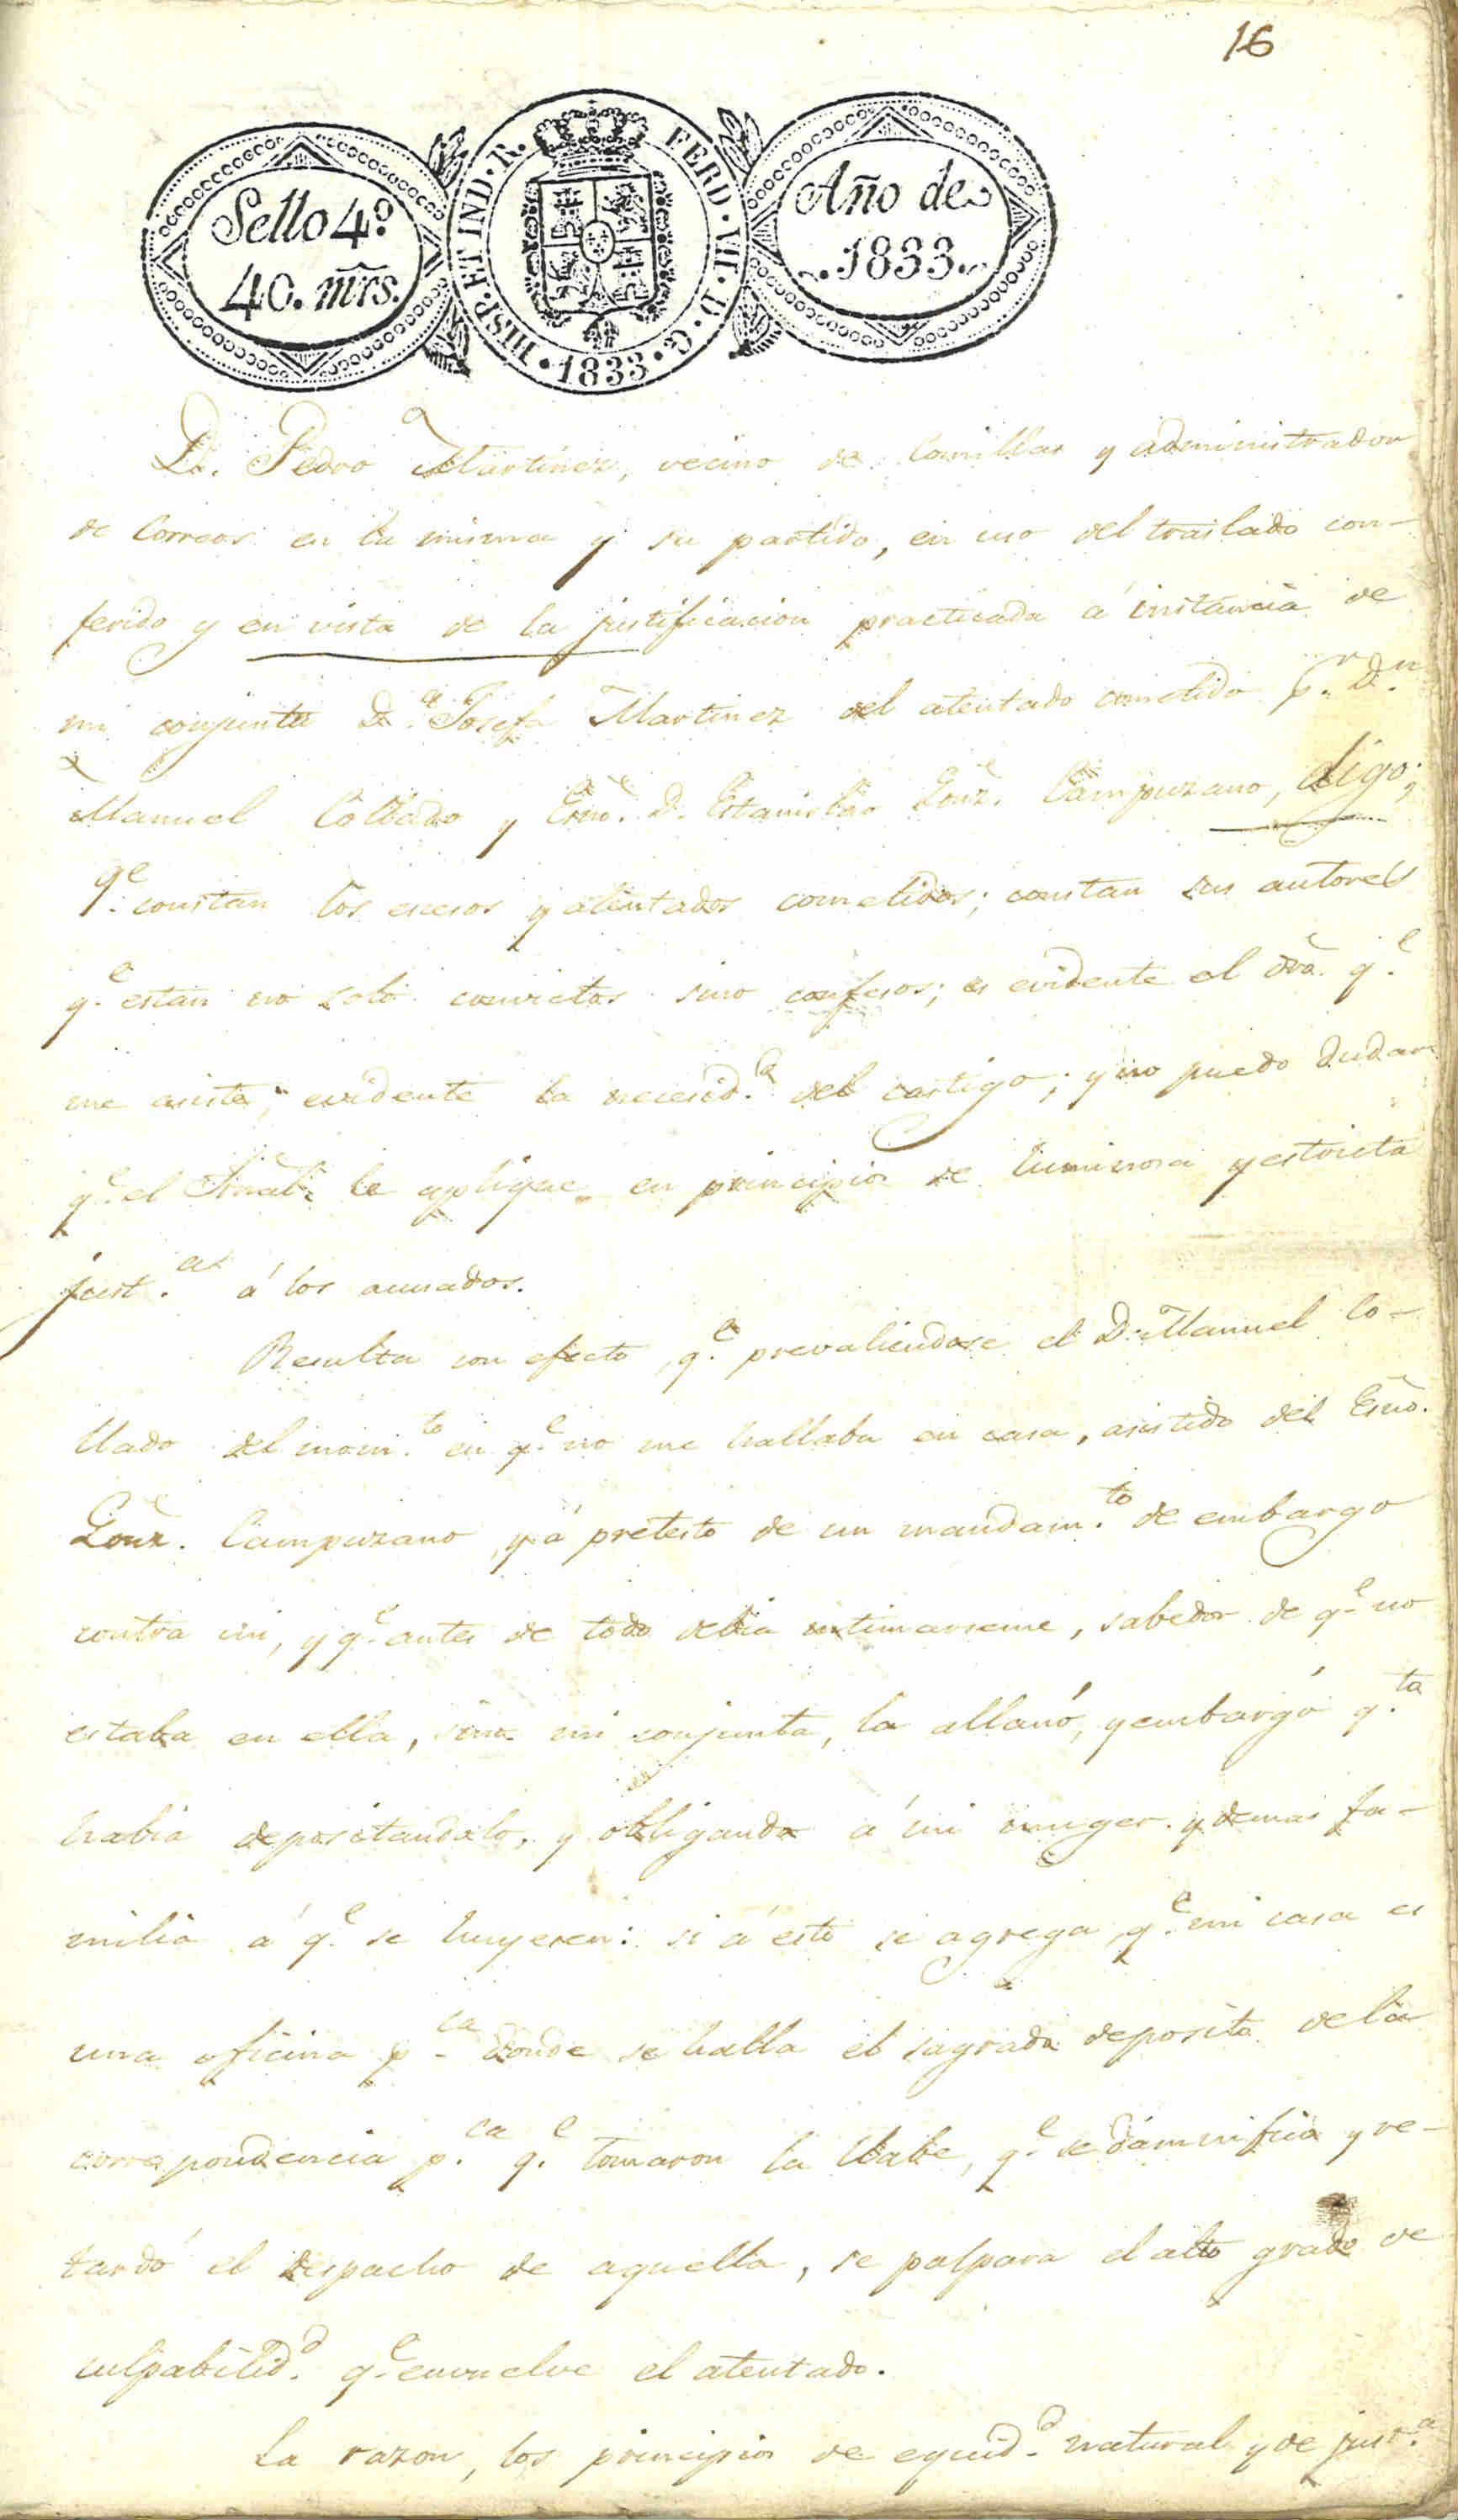 16
Sello 4º
40. mrs.
HISP. ET IND. R.
FERD. VII. D. G.
1833
Año de
1833.
Dn. Pedro Martinez, vecino de Comillas y administrador
de Correos en la misma y su partido, en uso del traslado con-
ferido y en vista de la justificacion practicada á instancia de
mi conjunta Dª. Josefa Martinez del atentado cometido pr. Dn.
Manuel Collado y Esno. D. Estanislao Gonz. Campuzano, digo;
qe. constan los escesos y atentados cometidos; constan sus autores
qe. estan no solo convictos sino confesos; es evidente el dro. qe.
me asiste; evidente la necesid.d del castigo; y no puedo dudar
qe. el Tribal. le aplique en principios de luminosa y estricta
just.a á los acusados.
Resulta con efecto, qe. prevaliendose el D. Manuel Co-
llado del mom.to en qe. no me hallaba en casa, asistido del Esno.
Gonz. Campuzano, y á pretesto de un mandam.to de embargo
contra mi, y qe. antes de todo debia intimarseme, sabedor de qe. no
estaba en ella, sino mi conjunta, la allanó, y embargó q.to
habia depositandolo, y obligando á mi muger y demas fa-
milia á qe. se huyesen: si á esto se agrega qe. mi casa es
una oficina p.ca donde se halla el sagrado deposito de la
correspondencia p.ca qe. tomaron la llabe, qe. se damnificó y re-
tardó el despacho de aquella, se palpara el alto grado de
culpabilid.d qe. envuelve el atentado.
La razon, los principios de equid.d natural y de just.a